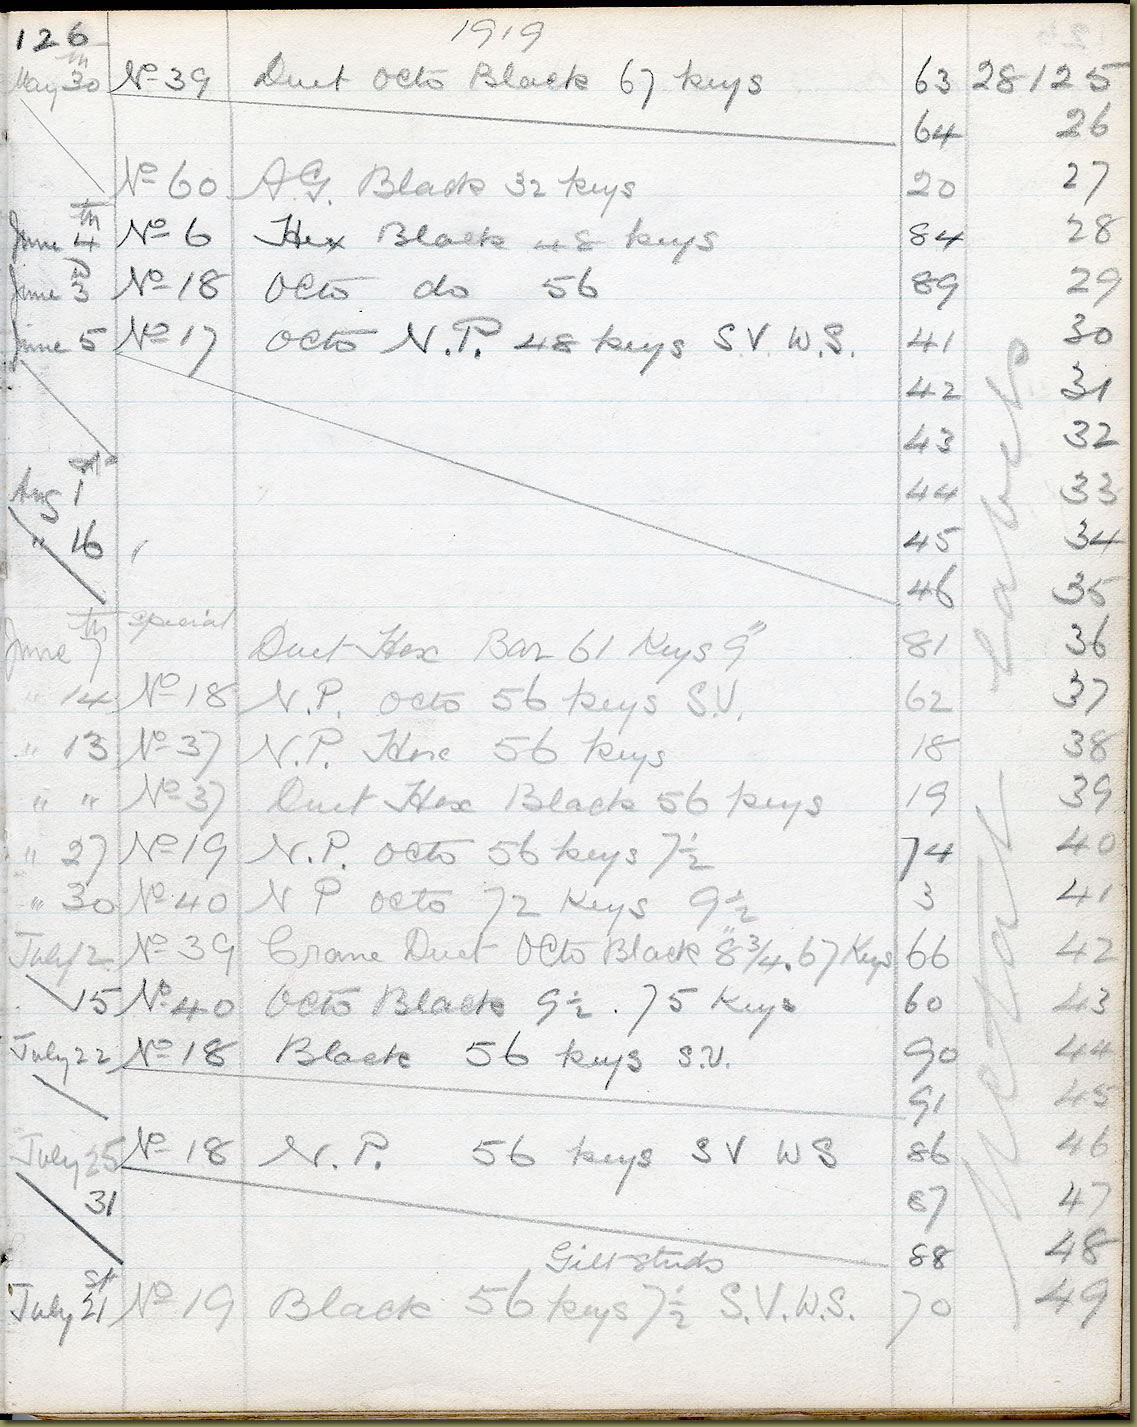 126 1919
May 30th No 39 Duet Octo Black 67 keys 63 28125
64 26
No 60 A.G. Black 32 keys 20 27
June 4th No 6 Hex Black 48 keys 84 28
June 3d No 18 Octo do 56 89 29
June 5 No 17 Octo N.P. 48 keys S.V. W.S. 41 30
42 31
43 32
Aug 1st 44 33
" 16 45 34
46 35
June 7th special Duet Hex Bar 61 Keys 9" 81 36
" 14 No 18 N.P. Octo 56 keys S.V. 62 37
" 13 No 37 N.P. Hex 56 keys 18 38
" " No 37 Duet Hex Black 56 keys 19 39
" 27 No 19 N.P. Octo 56 keys 7½ 74 40
" 30 No 40 N P Octo 72 Keys 9½ 3 41
July 12 No 39 Crane Duet Octo Black 8¾". 67 Keys 66 42
15 No 40 Octo Black 9½. 75 Keys 60 43
July 22 No 18 Black 56 keys S.V. 90 44
91 45
July 25 No 18 N.P. 56 keys S V W S 86 46
31 87 47
Gilt studs 88 48
July 21st No 19 Black 56 keys 7½ S.V.W.S. 70 49